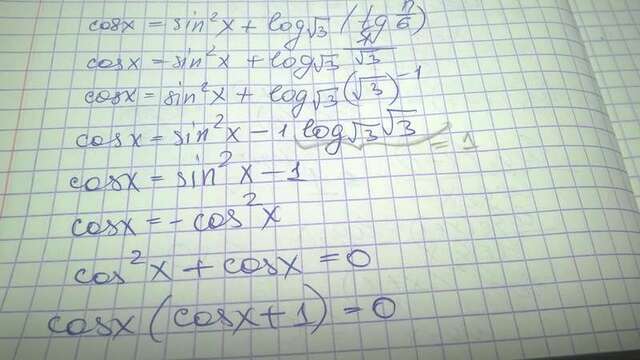 cosx = sin²x + log√3 (tg π/6)
cosx = sin²x + log√3 1/√3
cosx = sin²x + log√3 (√3)⁻¹
cosx = sin²x - 1 log√3 √3 = 1
cosx = sin²x - 1
cosx = - cos²x
cos²x + cosx = 0
cosx (cosx + 1) = 0